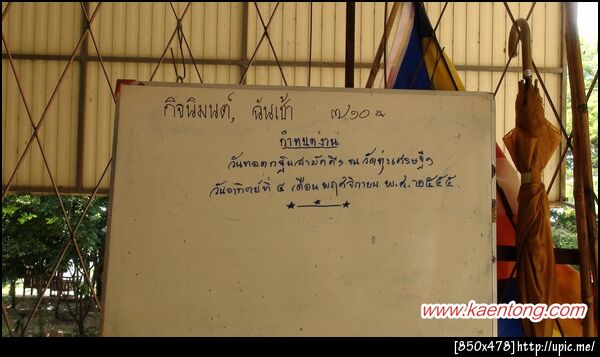 กิจนิมนต์, ฉันเช้า ๗/๑๐ น
กำหนดงาน
วันทอดกฐินสามัคคี ณ วัดทุ่งเศรษฐีฯ
วันอาทิตย์ที่ ๔ เดือน พฤศจิกายน พ.ศ. ๒๕๕๕.
www.kaentong.com
[850x478]http://upic.me/